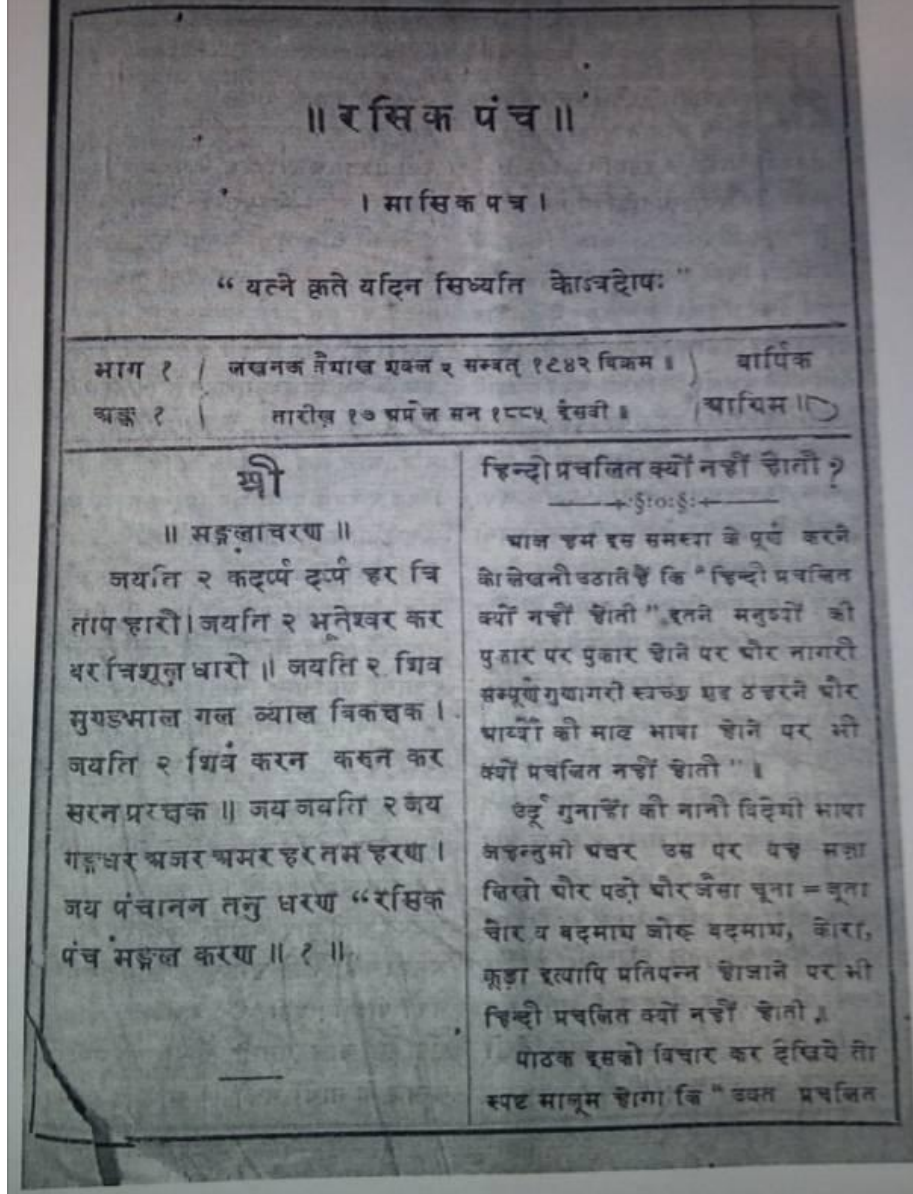 ॥ रसिक पंच ॥
। मासिक पत्र ।
“ यत्ने कृते यदिन सिर्ध्यति कोऽत्रदोषः ”
भाग १
अङ्क १
लखनऊ वैशाख शुक्ल २ सम्वत् १९४२ विक्रम ॥
तारीख़ १७ अप्रैल सन १८८५ ईसवी ॥
वार्षिक
अग्रिम
श्री
॥ मङ्गलाचरण ॥
जयति २ कंदर्प्प दर्प्प हर त्रि
ताप हारी। जयति २ भूतेश्वर कर
बर त्रिशूल धारी ॥ जयति २ शिव
मुण्डमाल गल व्याल विकच्छक ।
जयति २ शिवं करन करुन कर
सरन प्ररच्छक ॥ जय जयति २ जय
गङ्गधर अजर अमर हर तम हरण ।
जय पंचानन तनु धरण “रसिक
पंच मङ्गल करण ॥ १ ॥
हिन्दी प्रचलित क्यों नहीं होती ?
आज हम इस समस्या के पूर्ण करने
को लेखनी उठाते हैं कि “हिन्दी प्रचलित
क्यों नहीं होती” इतने मनुष्यों की
पुकार पर पुकार होने पर और नागरी
सम्पूर्ण गुणागरी स्वच्छ शुद्ध ठहरने और
आर्य्यों की मातृ भाषा होने पर भी
क्यों प्रचलित नहीं होती” ।
उर्दू गुनाहों की नानी विदेशी भाषा
जहन्नुमी अक्षर उस पर यह मज़ा
लिखो और पढ़ो और जैसा चूना = जूता
चोर व बदमाश जोरू बदमाश, कोरा,
कूड़ा इत्यापि प्रतिपन्न होजाने पर भी
हिन्दी प्रचलित क्यों नहीं होती ।
पाठक इसको विचार कर देखिये तो
स्पष्ट मालूम होगा कि “ उक्त प्रचलित